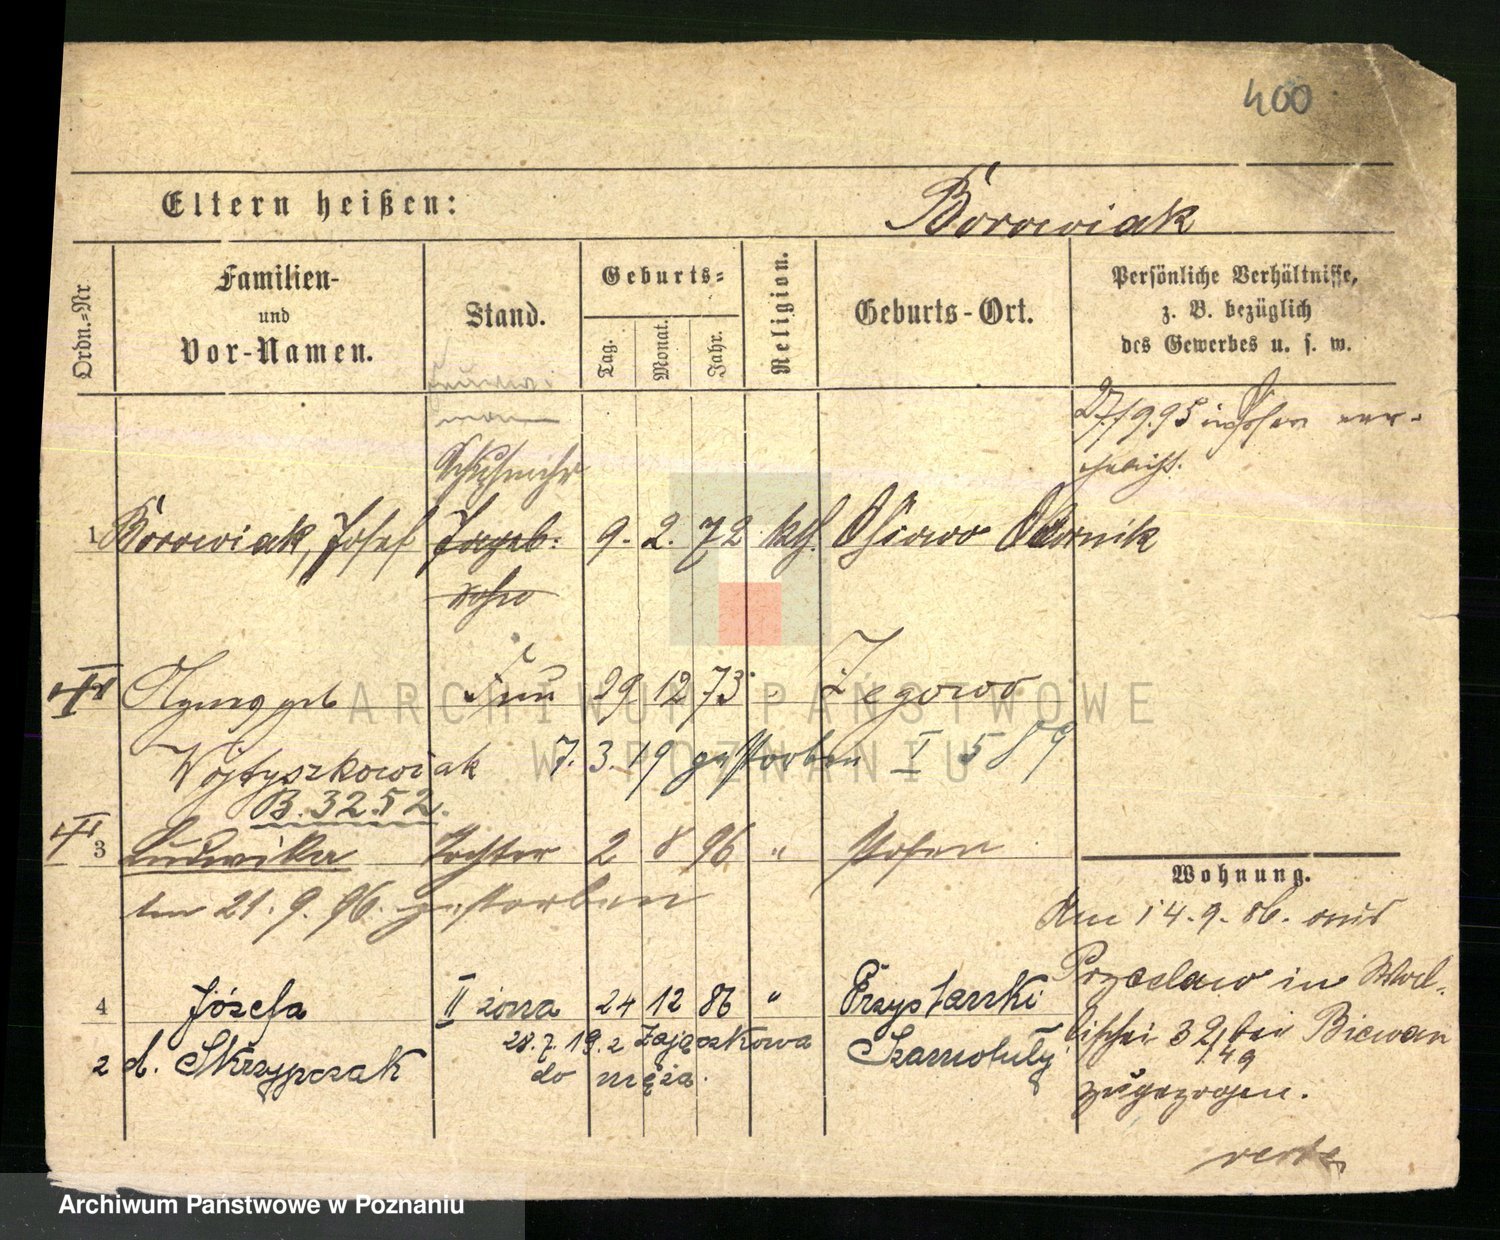 400
Eltern heißen:
Borowiak
Ordn.-Nr
Familien-
und
Vor-Namen.
Stand.
Geburts-
Tag.
Monat.
Jahr.
Religion.
Geburts-Ort.
Persönliche Verhältnisse,
z. B. bezüglich
des Gewerbes u. s. w.
27./9.95 in Posen
1 Borowiak, Josef 9. 2. 72 kth. Obornik
Frau 29 12 73 Żegowo
Wojtyszkowiak 7. 3. 19 gestorben I 589
B. 3252.
3 Ludwika Tochter 2 8 96 " Posen
den 21. 9. 96. gestorben
Wohnung.
Am 14. 9. 86. aus
Przeclaw in
32/49 bei
zugezogen.
4 Józefa II żona 24 12 86 " Przystanki
28.7.19. z Zajączkowa
2 d. Skrzypczak do męża. Szamotuły
verte
ARCHIWUM PAŃSTWOWE
W POZNANIU
Archiwum Państwowe w Poznaniu